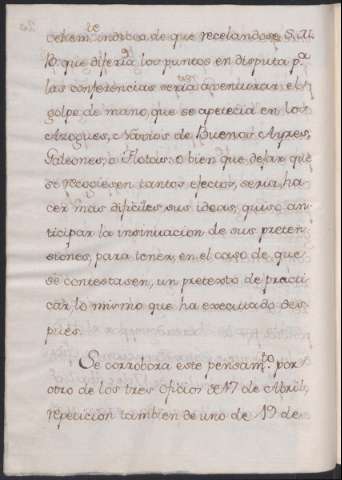 vehem.te indicio de que recelandose S. M.
B. que diferir los puntos en disputa p.a
las conferencias seria aventurar el
golpe de mano, que se apetecia en los
Azogues, Navios de Buenos Ayres,
Galeones, o Flotas: o bien que dejar que
se recogiesen tantos efectos, seria ha
cer mas dificiles sus ideas, quiso an
ticipar la insinuacion de sus preten
siones, para tener, en el caso de que
se contestasen, un pretexto de practi
car lo mismo que ha executado des
pues.
Se corrobora este pensam.to por
otro de los tres oficios de 17 de Abril,
repeticion tambien de uno de 19 de